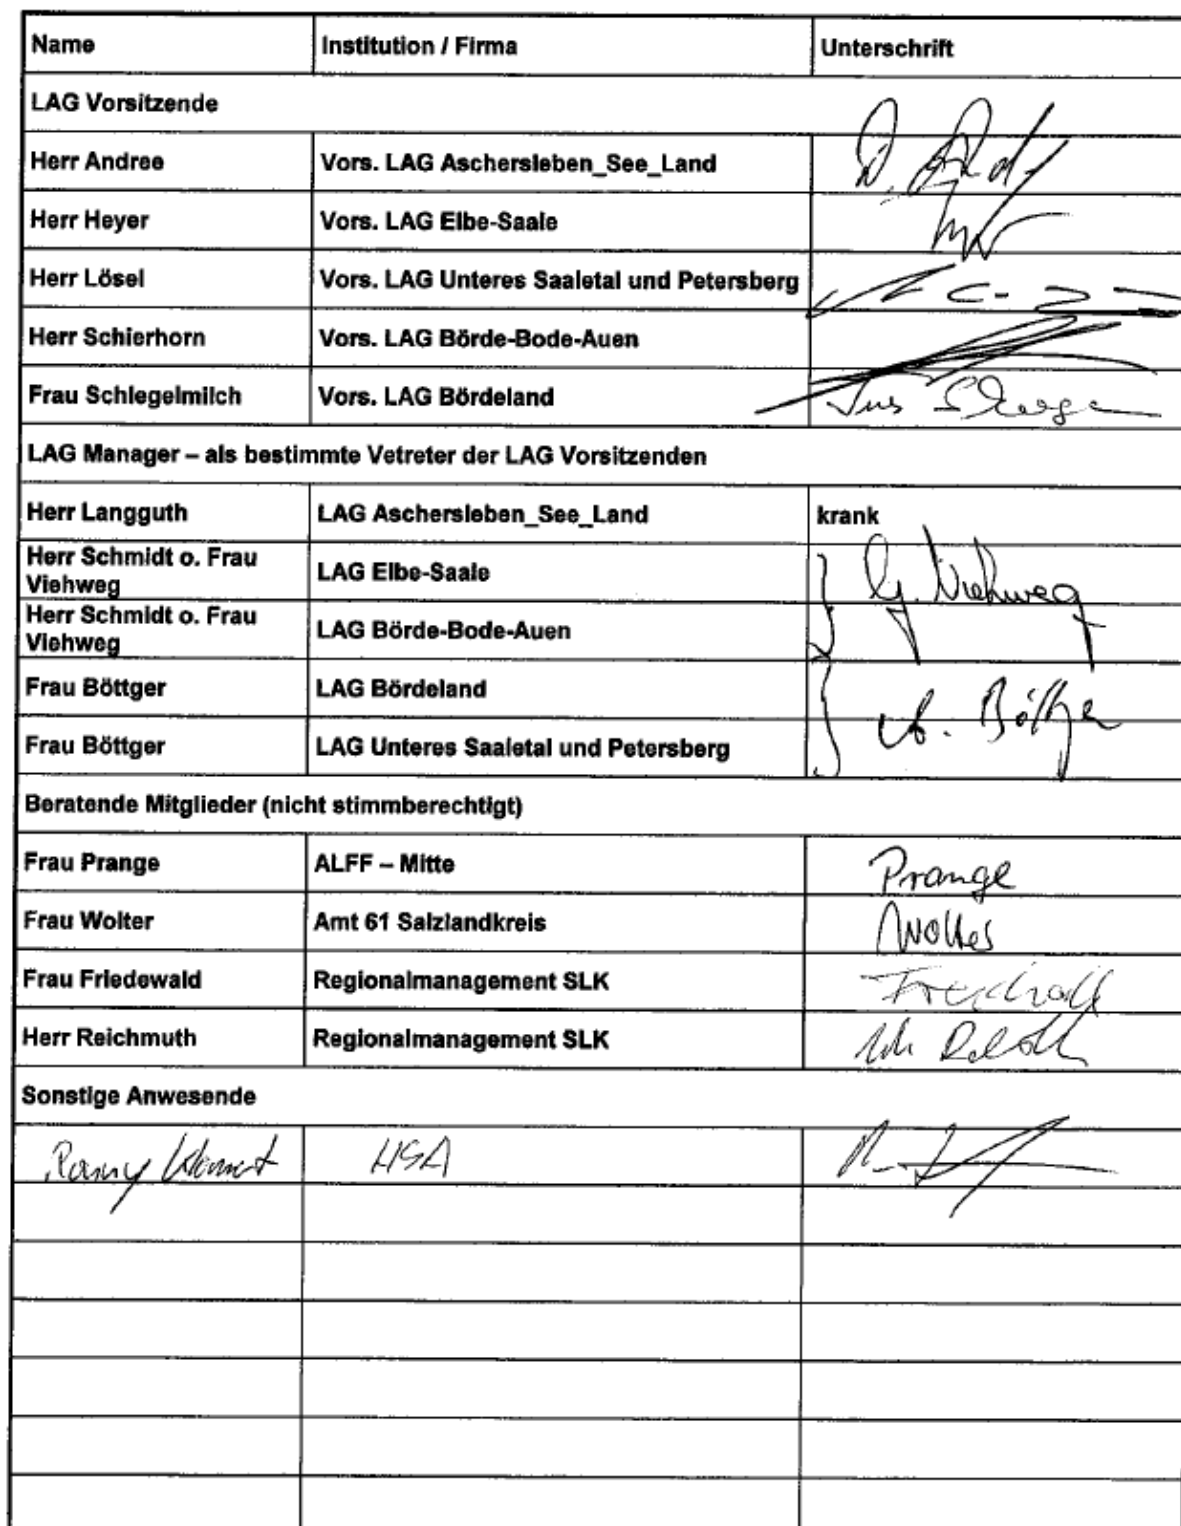 Name Institution / Firma Unterschrift
LAG Vorsitzende
Herr Andree Vors. LAG Aschersleben_See_Land
Herr Heyer Vors. LAG Elbe-Saale
Herr Lösel Vors. LAG Unteres Saaletal und Petersberg
Herr Schierhorn Vors. LAG Börde-Bode-Auen
Frau Schlegelmilch Vors. LAG Bördeland
LAG Manager – als bestimmte Vetreter der LAG Vorsitzenden
Herr Langguth LAG Aschersleben_See_Land krank
Herr Schmidt o. Frau
Viehweg LAG Elbe-Saale G. Viehweg
Herr Schmidt o. Frau
Viehweg LAG Börde-Bode-Auen
Frau Böttger LAG Bördeland Böttger
Frau Böttger LAG Unteres Saaletal und Petersberg
Beratende Mitglieder (nicht stimmberechtigt)
Frau Prange ALFF – Mitte Prange
Frau Wolter Amt 61 Salzlandkreis Wolter
Frau Friedewald Regionalmanagement SLK
Herr Reichmuth Regionalmanagement SLK
Sonstige Anwesende